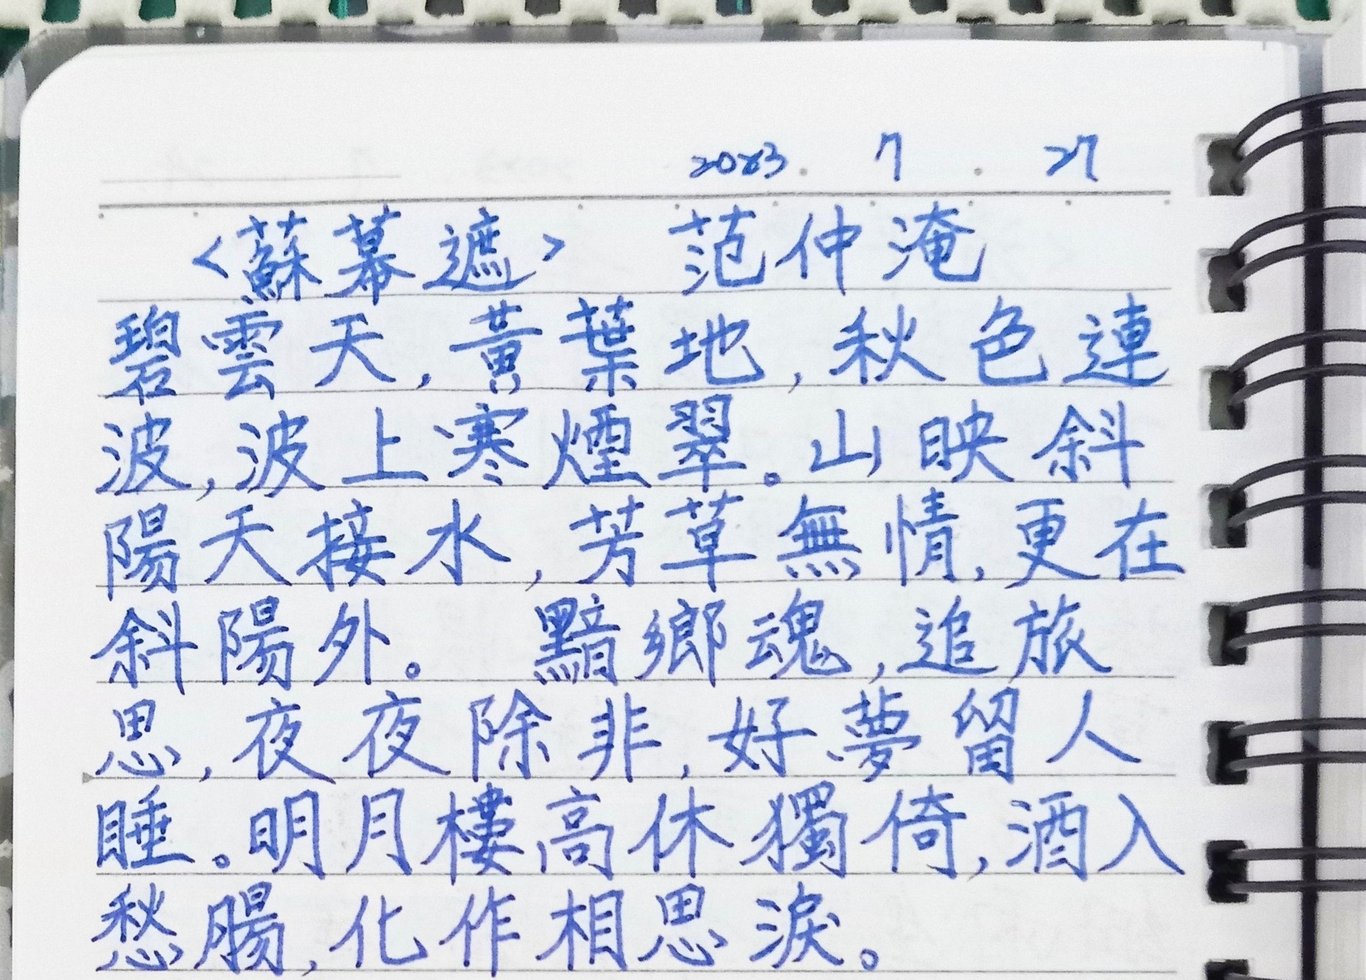 2023. 7. 27
<蘇幕遮> 范仲淹
碧雲天,黃葉地,秋色連
波,波上寒煙翠。山映斜
陽天接水,芳草無情,更在
斜陽外。 黯鄉魂,追旅
思,夜夜除非,好夢留人
睡。明月樓高休獨倚,酒入
愁腸,化作相思淚。